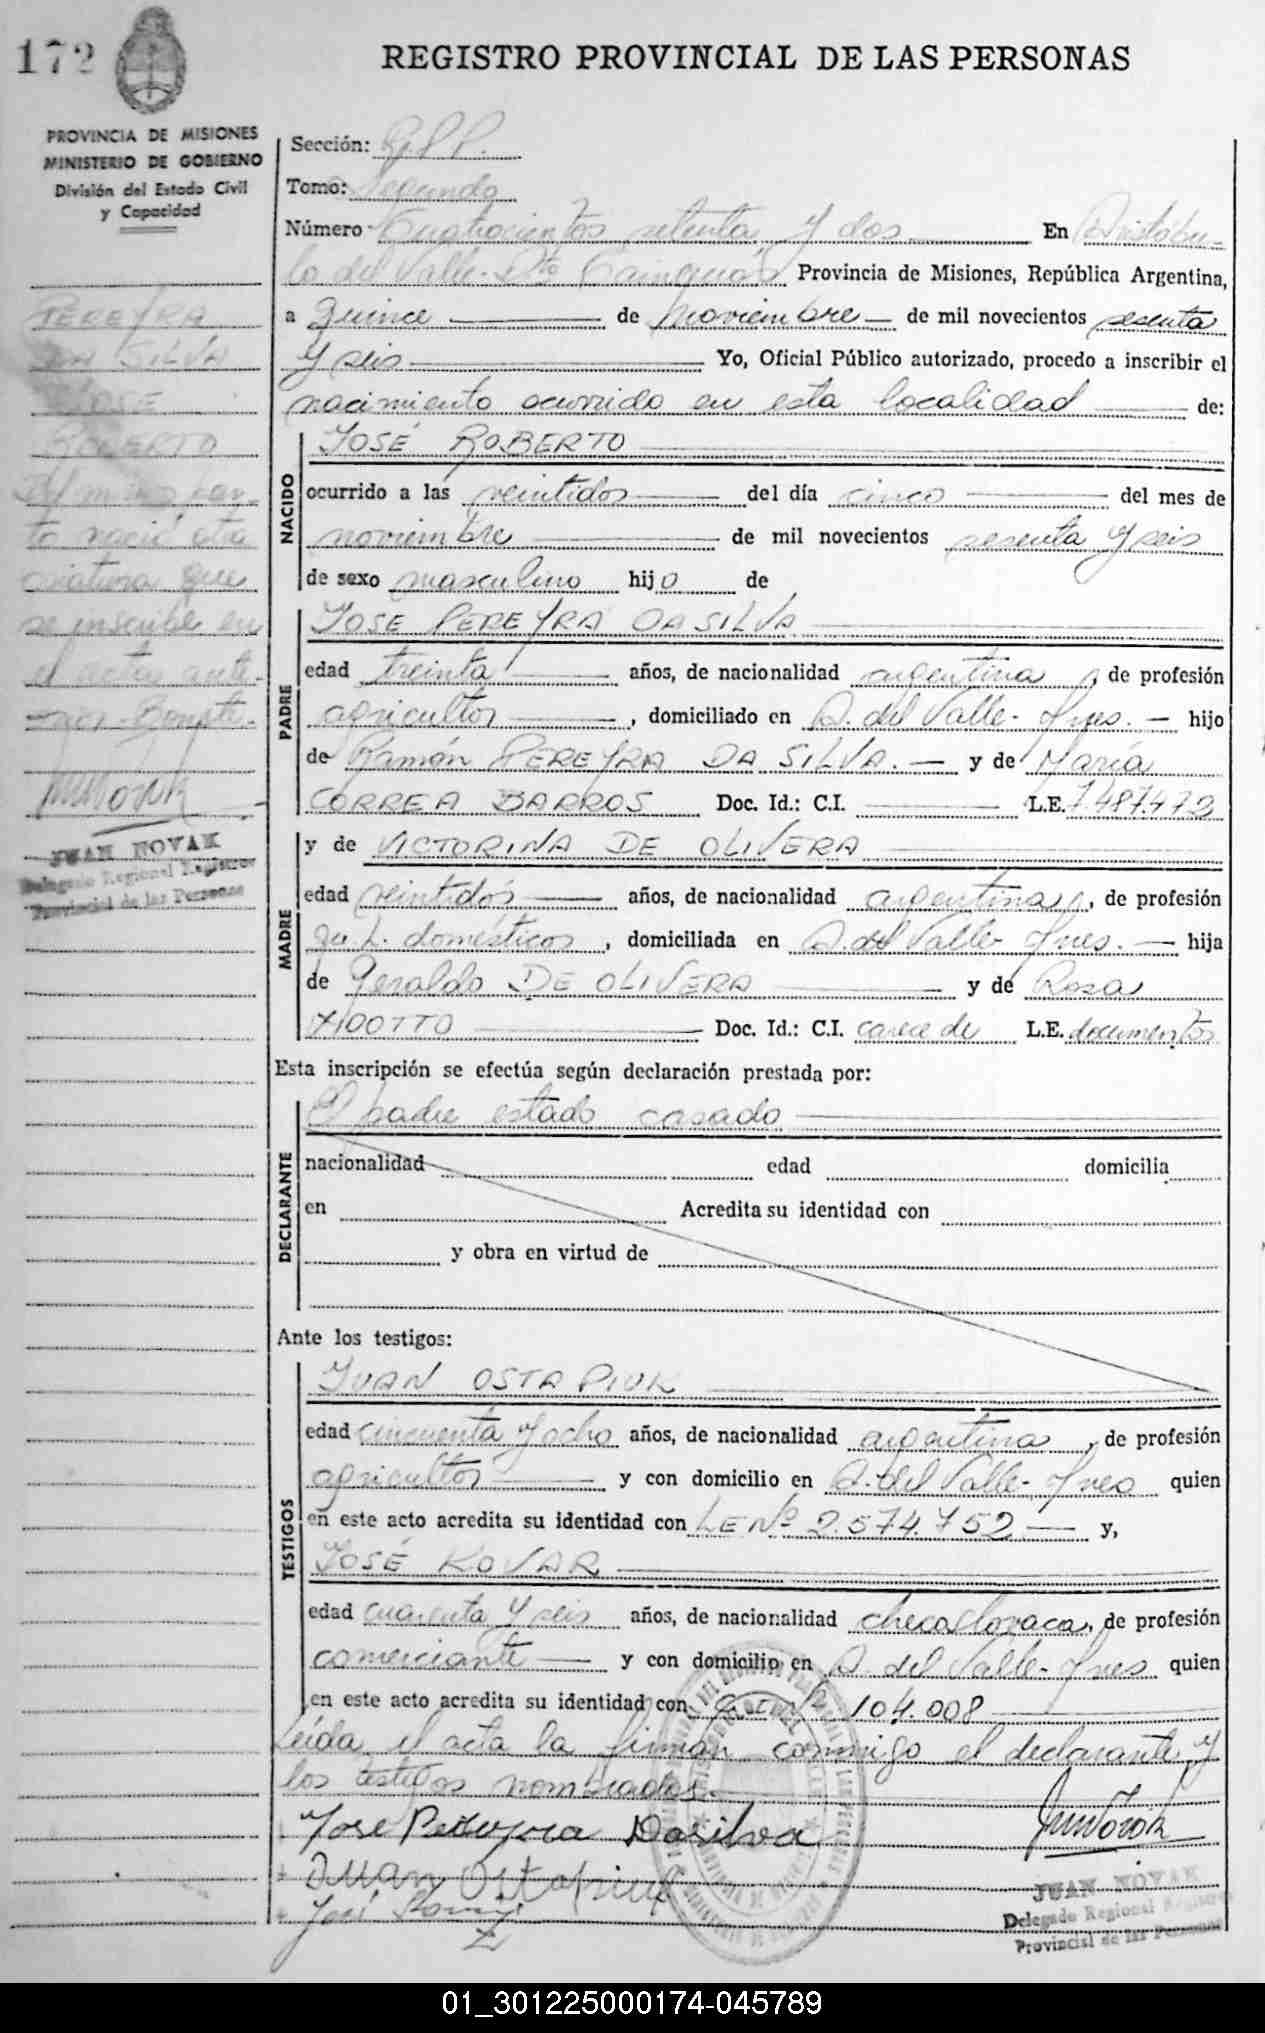 172
REGISTRO PROVINCIAL DE LAS PERSONAS
PROVINCIA DE MISIONES
MINISTERIO DE GOBIERNO
División del Estado Civil
y Capacidad
Sección:
Tomo: Segundo
Número Cuatrocientos setenta y dos En Aristóbu-
lo del Valle- Dto Cainguás Provincia de Misiones, República Argentina,
a quince de noviembre de mil novecientos sesenta
y seis Yo, Oficial Público autorizado, procedo a inscribir el
nacimiento ocurrido en esta localidad de:
PEREYRA
DA SILVA
JOSE
ROBERTO
Del mismo par-
to nació otra
criatura que
se inscribe en
el acta ante-
rior-
JUAN NOVAK
Delegado Regional Registro
Provincial de las Personas
NACIDO
JOSÉ ROBERTO
ocurrido a las veintidos del día cinco del mes de
noviembre de mil novecientos sesenta y seis
de sexo masculino hijo de
PADRE
JOSE PEREYRA DA SILVA
edad treinta años, de nacionalidad argentina, de profesión
agricultor, domiciliado en A. del Valle- Mnes. hijo
de Ramón PEREYRA DA SILVA. y de María
CORREA BARROS Doc. Id.: C.I. L.E. 7.487.472
MADRE
y de VICTORINA DE OLIVERA
edad veintidós años, de nacionalidad argentina, de profesión
qu h. domésticos, domiciliada en A. del Valle- Mnes. hija
de Geraldo DE OLIVERA y de Rosa
Doc. Id.: C.I. carece de L.E. documentos
Esta inscripción se efectúa según declaración prestada por:
DECLARANTE
El padre estado casado
nacionalidad edad domicilia
en Acredita su identidad con
y obra en virtud de
Ante los testigos:
TESTIGOS
JUAN OSTAPIUK
edad cincuenta y ocho años, de nacionalidad argentina, de profesión
agricultor y con domicilio en A. del Valle- Mnes quien
en este acto acredita su identidad con LE Nº 2.574.752 y,
JOSÉ KOVAR
edad cuarenta y seis años, de nacionalidad checoslovaca, de profesión
comerciante y con domicilio en A. del Valle- Mnes quien
en este acto acredita su identidad con 104.008
Leída el acta la firman conmigo el declarante y
los testigos nombrados.
Jose Pereyra Dasilva
Juan Ostapiuk
José
JUAN NOVAK
Delegado Regional Registro
Provincial de las Personas
01_301225000174-045789